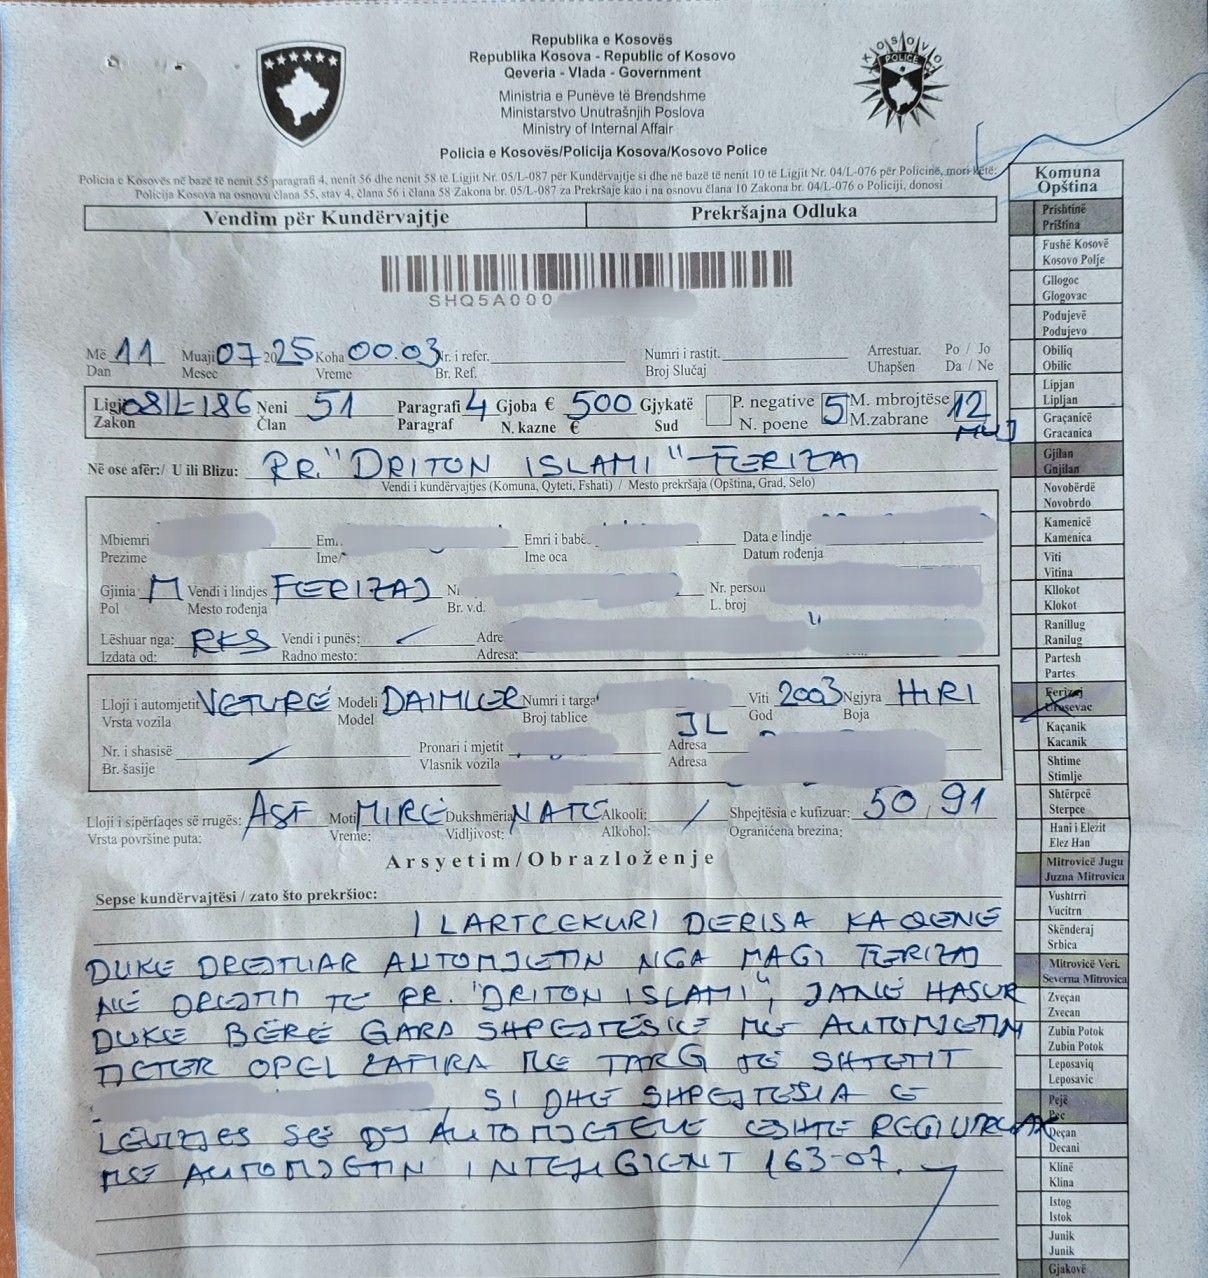 Republika e Kosovës
Republika Kosova - Republic of Kosovo
Qeveria - Vlada - Government
Ministria e Punëve të Brendshme
Ministarstvo Unutrašnjih Poslova
Ministry of Internal Affair
Policia e Kosovës/Policija Kosova/Kosovo Police
KOSOVO
POLICE
Policia e Kosovës në bazë të nenit 55 paragrafi 4, nenit 56 dhe nenit 58 të Ligjit Nr. 05/L-087 për Kundërvajtje si dhe në bazë të nenit 10 të Ligjit Nr. 04/L-076 për Policinë, mori këtë:
Policija Kosova na osnovu člana 55, stav 4, člana 56 i člana 58 Zakona br. 05/L-087 za Prekršaje kao i na osnovu člana 10 Zakona br. 04/L-076 o Policiji, donosi
Vendim për Kundërvajtje Prekršajna Odluka
SHQ5A000
Më 11 Muaji 07 2025 Koha 00.03 Nr. i refer. Numri i rastit. Arrestuar. Po / Jo
Dan Mesec Vreme Br. Ref. Broj Slučaj Uhapšen Da / Ne
Ligji 08/L-186 Neni 51 Paragrafi 4 Gjoba € 500 Gjykatë P. negative 5 M. mbrojtëse 12
Zakon Član Paragraf N. kazne € Sud N. poene M.zabrane MUJ
Në ose afër:/ U ili Blizu: RR. "DRITON ISLAMI" - FERIZAJ
Vendi i kundërvajtjes (Komuna, Qyteti, Fshati) / Mesto prekršaja (Opština, Grad, Selo)
Mbiemri Em. Emri i babë Data e lindje
Prezime Ime Ime oca Datum rođenja
Gjinia M Vendi i lindjes FERIZAJ Nr. person
Pol Mesto rođenja Br. v.d. L. broj
Lëshuar nga: RKS Vendi i punës: / Adre
Izdata od: Radno mesto: Adresa:
Lloji i automjetit VETURË Modeli DAIMLER Numri i targa Viti 2003 Ngjyra HIRI
Vrsta vozila Model Broj tablice God Boja
Nr. i shasisë / Pronari i mjetit Adresa
Br. šasije Vlasnik vozila Adresa
Lloji i sipërfaqes së rrugës: ASF Moti MIRË Dukshmëria NATË Alkooli: / Shpejtësia e kufizuar: 50, 91
Vrsta površine puta: Vreme: Vidljivost: Alkohol: Ograničena brezina:
Arsyetim/Obrazloženje
Sepse kundërvajtësi / zato što prekršioc:
I LARTCEKURI DERISA KA QENE
DUKE DREJTUAR AUTOMJETIN NGA MAGJ FERIZAJ
NË DREJTIM TE RR. "DRITON ISLAMI", JANË HASUR
DUKE BËRË GARA SHPEJTËSIE ME AUTOMJETIN
TJETER OPEL ZAFIRA ME TARG TË SHTETIT
, SI DHE SHPEJTËSIA E
LËVIZJES SË DY AUTOMJETEVE ËSHTË REGJISTRUAR
ME AUTOMJETIN INTELIGJENT 163-07.
Komuna
Opština
Prishtinë
Priština
Fushë Kosovë
Kosovo Polje
Gllogoc
Glogovac
Podujevë
Podujevo
Obiliq
Obilic
Lipjan
Lipljan
Graçanicë
Gracanica
Gjilan
Gnjilan
Novobërdë
Novobrdo
Kamenicë
Kamenica
Viti
Vitina
Kllokot
Klokot
Ranillug
Ranilug
Partesh
Partes
Ferizaj
Urosevac
Kaçanik
Kacanik
Shtime
Stimlje
Shtërpcë
Sterpce
Hani i Elezit
Elez Han
Mitrovicë Jugu
Juzna Mitrovica
Vushtrri
Vucitrn
Skënderaj
Srbica
Mitrovicë Veri.
Severna Mitrovica
Zveçan
Zvecan
Zubin Potok
Zubin Potok
Leposaviq
Leposavic
Pejë
Pec
Deçan
Decani
Klinë
Klina
Istog
Istok
Junik
Junik
Gjakovë